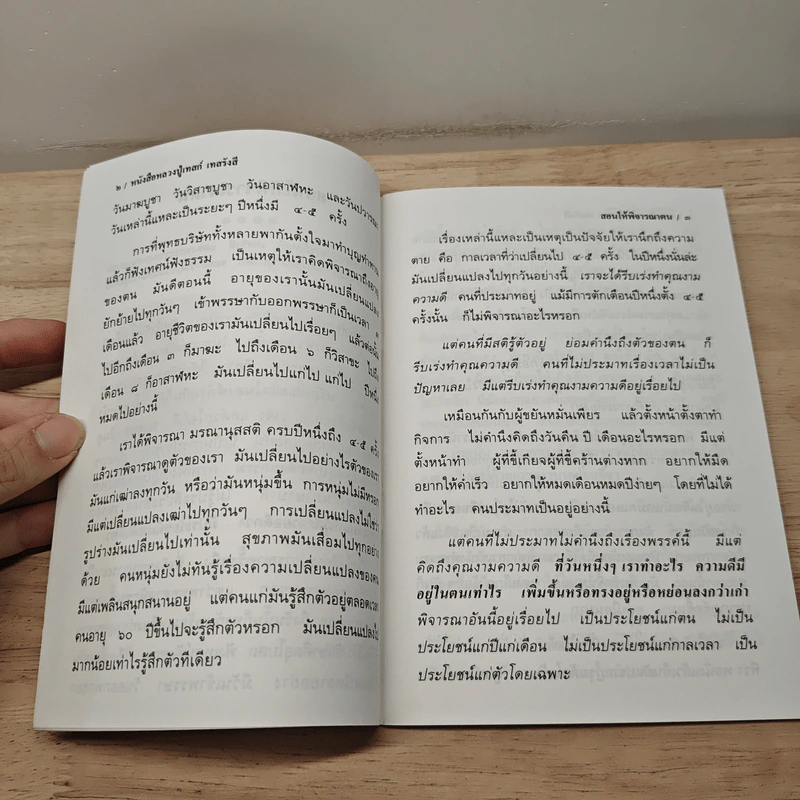 ๒ / หนังสือหลวงปู่เทสก์ เทสรังสี
วันมาฆบูชา วันวิสาขบูชา วันอาสาฬหะ และวันปวารณา
วันเหล่านี้แหละเป็นระยะๆ ปีหนึ่งมี ๔-๕ ครั้ง
การที่พุทธบริษัททั้งหลายพากันตั้งใจมาทำบุญทำทาน
แล้วก็ฟังเทศน์ฟังธรรม เป็นเหตุให้เราคิดพิจารณาถึงอายุ
ของตน มันดีตอนนี้ อายุของเรานั้นมันเปลี่ยนแปลง
ยักย้ายไปทุกวันๆ เข้าพรรษากับออกพรรษาก็เป็นเวลา ๓
เดือนแล้ว อายุชีวิตของเรามันเปลี่ยนไปเรื่อยๆ แล้วต่อนั้น
ไปอีกถึงเดือน ๓ ก็มาฆะ ไปถึงเดือน ๖ ก็วิสาขะ ไปถึง
เดือน ๘ ก็อาสาฬหะ มันเปลี่ยนไปแก่ไป แก่ไป ปีหนึ่ง
หมดไปอย่างนี้
เราได้พิจารณา มรณานุสสติ ครบปีหนึ่งถึง ๔-๕ ครั้ง
แล้วเราพิจารณาดูตัวของเรา มันเปลี่ยนไปอย่างไรตัวของเรา
มันแก่เฒ่าลงทุกวัน หรือว่ามันหนุ่มขึ้น การหนุ่มไม่มีหรอก
มีแต่เปลี่ยนแปลงเฒ่าไปทุกวันๆ การเปลี่ยนแปลงไม่ใช่ว่า
รูปร่างมันเปลี่ยนไปเท่านั้น สุขภาพมันเสื่อมไปทุกอย่าง
ด้วย คนหนุ่มยังไม่ทันรู้เรื่องความเปลี่ยนแปลงของตน
มีแต่เพลินสนุกสนานอยู่ แต่คนแก่มันรู้สึกตัวอยู่ตลอดเวลา
คนอายุ ๖๐ ปีขึ้นไปจะรู้สึกตัวหรอก มันเปลี่ยนแปลงไป
มากน้อยเท่าไรรู้สึกตัวทีเดียว
สอนให้พิจารณาตน / ๓
เรื่องเหล่านี้แหละเป็นเหตุเป็นปัจจัยให้เรานึกถึงความ
ตาย คือ กาลเวลาที่ว่าเปลี่ยนไป ๔-๕ ครั้ง ในปีหนึ่งนั่นละ
มันเปลี่ยนแปลงไปทุกวันอย่างนี้ เราจะได้รีบเร่งทำคุณงาม
ความดี คนที่ประมาทอยู่ แม้มีการตักเตือนปีหนึ่งตั้ง ๔-๕
ครั้งนั้น ก็ไม่พิจารณาอะไรหรอก
แต่คนที่มีสติรู้ตัวอยู่ ย่อมคำนึงถึงตัวของตน ก็
รีบเร่งทำคุณความดี คนที่ไม่ประมาทเรื่องเวลาไม่เป็น
ปัญหาเลย มีแต่รีบเร่งทำคุณงามความดีอยู่เรื่อยไป
เหมือนกันกับผู้ขยันหมั่นเพียร แล้วตั้งหน้าตั้งตาทำ
กิจการ ไม่คำนึงคิดถึงวันคืน ปี เดือนอะไรหรอก มีแต่
ตั้งหน้าทำ ผู้ที่ขี้เกียจผู้ที่ขี้คร้านต่างหาก อยากให้มืด
อยากให้ค่ำเร็ว อยากให้หมดเดือนหมดปีง่ายๆ โดยที่ไม่ได้
ทำอะไร คนประมาทเป็นอยู่อย่างนี้
แต่คนที่ไม่ประมาทไม่คำนึงถึงเรื่องพรรค์นี้ มีแต่
คิดถึงคุณงามความดี ที่วันหนึ่งๆ เราทำอะไร ความดีมี
อยู่ในตนเท่าไร เพิ่มขึ้นหรือทรงอยู่หรือหย่อนลงกว่าเก่า
พิจารณาอันนี้อยู่เรื่อยไป เป็นประโยชน์แก่ตน ไม่เป็น
ประโยชน์แก่ปีแก่เดือน ไม่เป็นประโยชน์แก่กาลเวลา เป็น
ประโยชน์แก่ตัวโดยเฉพาะ